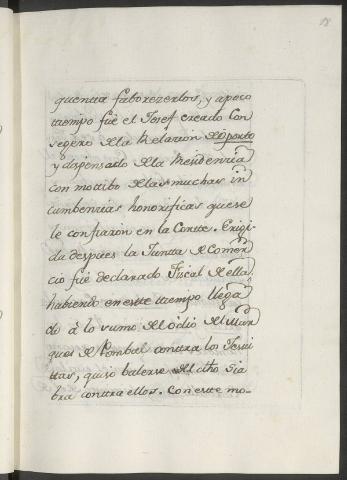 18
quentra faborezerlos, y apoco
tiempo fué el Josef creado Con
segero de la Relazion de Oporto
y dispensado de la Residenzia
con motibo de las muchas in
cumbenzias honorificas que se
le confiaron en la Corte. Erigi-
da despues la Juntta de Comer
cio fué declarado Fiscal de ella;
habiendo en este ttiempo llega
do á lo sumo del ódio del Mar
ques de Pombal conttra los Jesui
ttas, quiso balerse del dho Sia
bra contra ellos. Con este mo-